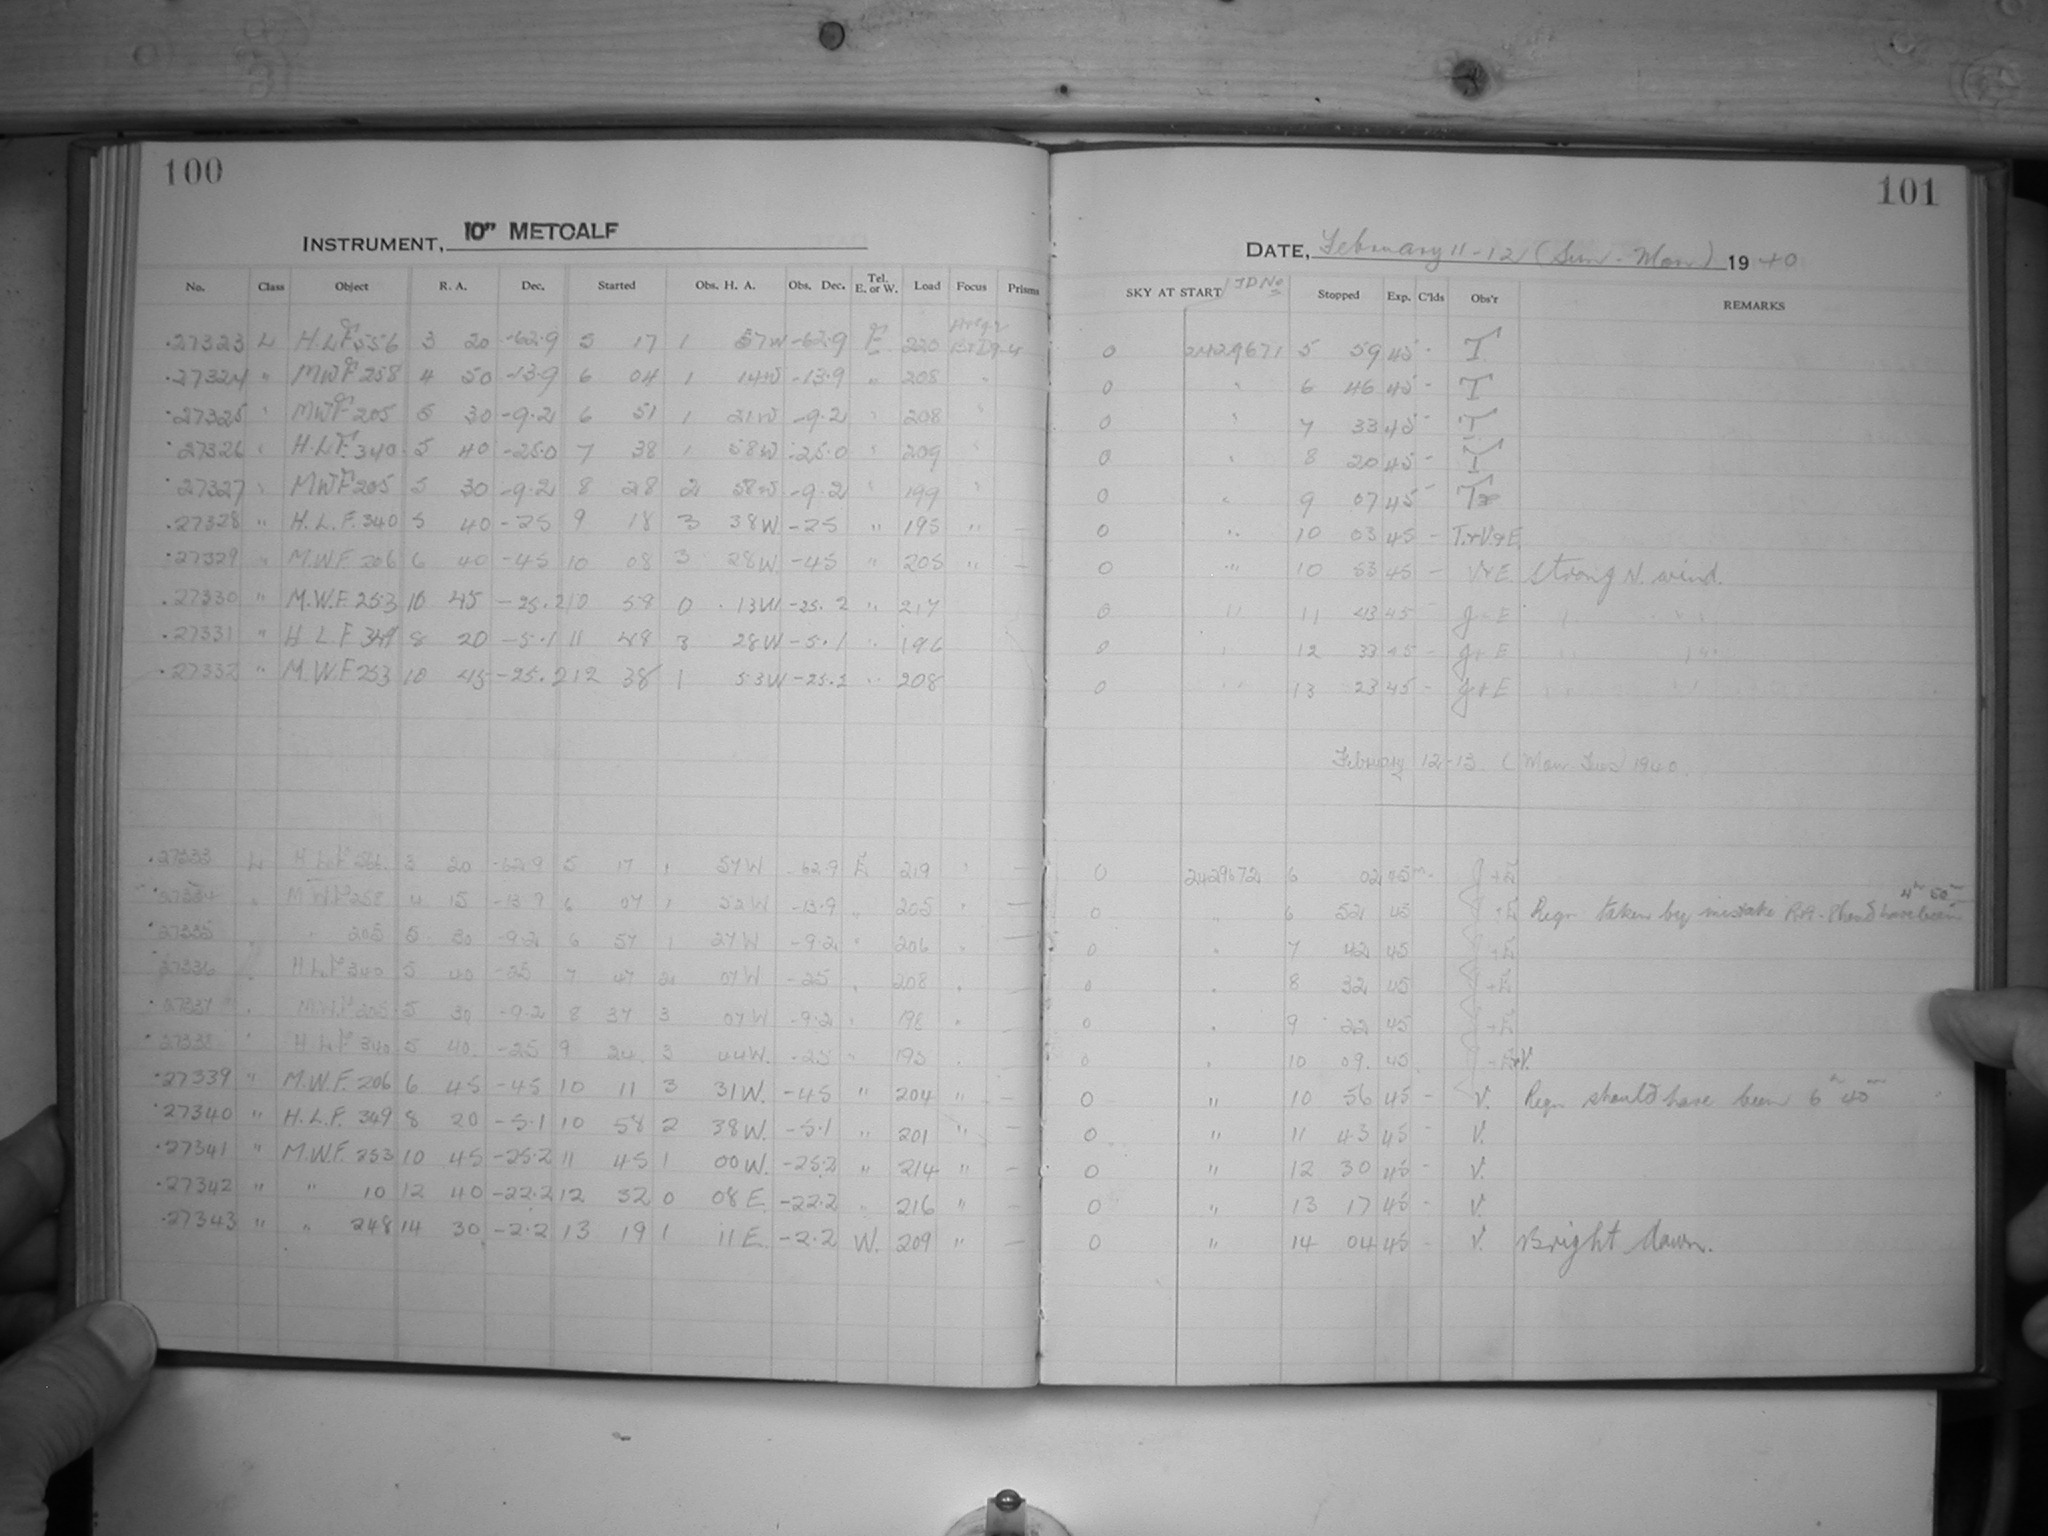 100
INSTRUMENT, 10" METCALF
No. Class Object R. A. Dec. Started Obs. H. A. Obs. Dec. Tel. E. or W. Load Focus Prisms
27323 L H.L.F. 556 3 20 -62.9 5 17 1 57W -62.9 E 220
27324 " MWF 258 4 50 -13.9 6 04 1 14W -13.9 " 208 "
27325 " MWF 205 5 30 -9.2 6 51 1 21W -9.2 " 208 "
27326 " H.L.F. 340 5 40 -25.0 7 38 1 58W -25.0 " 209 "
27327 " MWF 205 5 30 -9.2 8 28 2 58W -9.2 " 199 "
27328 " H.L.F. 340 5 40 -25 9 18 3 38W -25 " 195 " -
27329 " M.W.F. 206 6 40 -45 10 08 3 28W. -45 " 205 " -
27330 " M.W.F. 253 10 45 -25.2 10 58 0 13W -25.2 " 217
27331 " H.L.F 349 8 20 -5.1 11 48 3 28W -5.1 " 196
27332 " M.W.F 253 10 45 -25.2 12 38 1 53W -25.2 " 208
27333 L H.L.F 3 20 -62.9 5 17 1 57W -62.9 E 219 " -
27334 " MWF 258 4 15 -13.9 6 07 1 52W -13.9 " 205 " -
27335 " 205 5 30 -9.2 6 57 1 27W -9.2 " 206 " -
27336 " H.L.F 340 5 40 -25 7 47 2 07W -25 " 208 " -
27337 " M.W.F 205 5 30 -9.2 8 37 3 07W -9.2 " " -
27338 " H.L.F 340 5 40 -25 9 24 3 44W. -25 " 195 " -
27339 " M.W.F. 206 6 45 -45 10 11 3 31W. -45 " 204 " -
27340 " H.L.F. 349 8 20 -5.1 10 58 2 38W. -5.1 " 201 " -
27341 " M.W.F. 253 10 45 -25.2 11 45 1 00W. -25.2 " 214 " -
27342 " " 10 12 40 -22.2 12 32 0 08E -22.2 " 216 " -
27343 " " 248 14 30 -2.2 13 19 1 11E -2.2 W. 209 " -
101
DATE, February 11-12 (Sun - Mon) 1940
SKY AT START JD No Stopped Exp. C'lds Obs'r REMARKS
0 2429671 5 59 45 - T
0 " 6 46 45 - T
0 " 7 33 45 - T
0 " 8 20 45 - T
0 " 9 07 45 - T
0 " 10 03 45 -
0 " 10 53 45 - V+E Strong N. wind.
0 " 11 43 45 - J+E " " "
0 " 12 33 45 - J+E " "
0 " 13 23 45 - J+E " "
February 12-13. (Mon Tues) 1940.
0 2429672 6 02 45m - J+E
0 " 6 52 45 J+E Regn taken by mistake R.A. should have been 4h 50m
0 " 7 42 45 J+E
0 " 8 32 45 J+E
0 " 9 22 45 J+E
0 " 10 09. 45 J+E+V.
0 " 10 56 45 - V. Regn should have been 6h 40m
0 " 11 43 45 - V.
0 " 12 30 45 - V.
0 " 13 17 45 - V.
0 " 14 04 45 - V. Bright dawn.